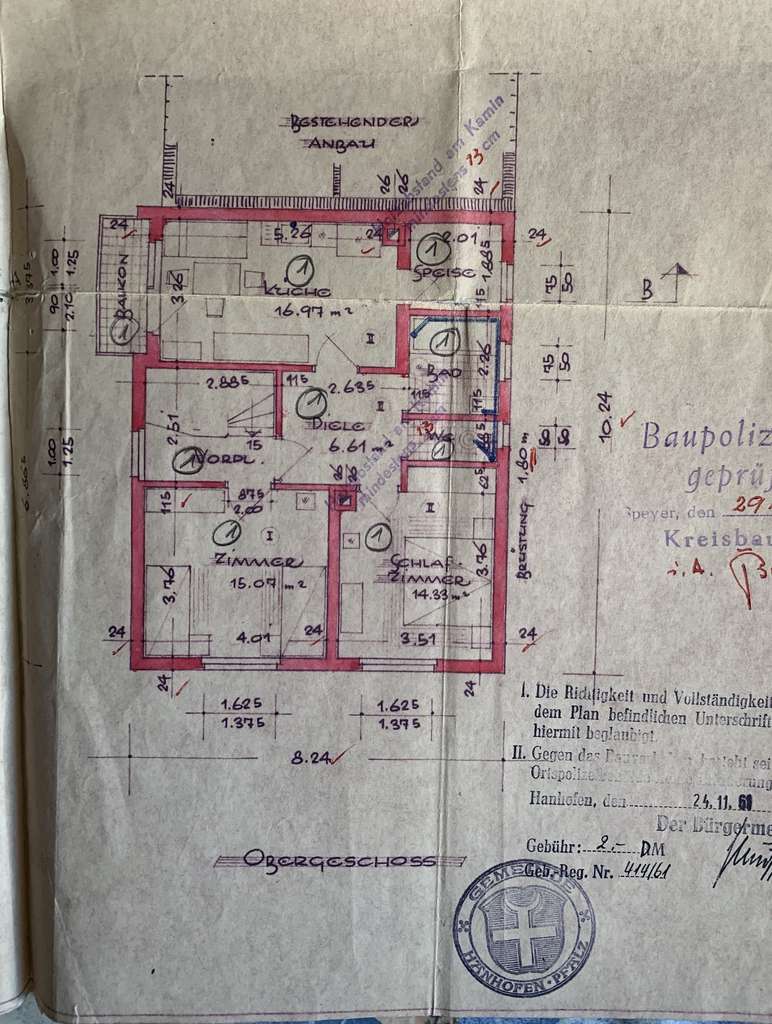 BESTEHENDER
ANBAU
24
26
26
24
mindestens 13 cm
24
5.26
24
2.01
24
1
1
SPEISE
1.885
KÜCHE
16.97 m²
3.26
BALKON
1
1.00
1.25
90
2.10
75
50
B
II
115
1
BAD
2.26
75
50
2.885
115
2.635
115
1
II
DIELE
6.61 m²
2.51
15
1
VORPL.
13
WC
1
50
50
10.24
1.00
1.25
26
26
625
BRÜSTUNG 1.80 m
115
875
2.00
1
I
ZIMMER
15.07 m²
3.76
4.01
1
II
SCHLAF-
ZIMMER
14.33 m²
3.76
3.51
24
24
24
24
24
1.625
1.375
1.625
1.375
8.24
OBERGESCHOSS
Baupoliz
geprüf
Speyer, den 29.
Kreisbau
i.A.
I. Die Richtigkeit und Vollständigkeit
dem Plan befindlichen Unterschrift
hiermit beglaubigt.
II. Gegen das
Hanhofen, den 24.11.61
Der Bürgerme
Gebühr: 2.- DM
Geb.-Reg. Nr. 414/61
GEMEINDE
HANHOFEN · PFALZ